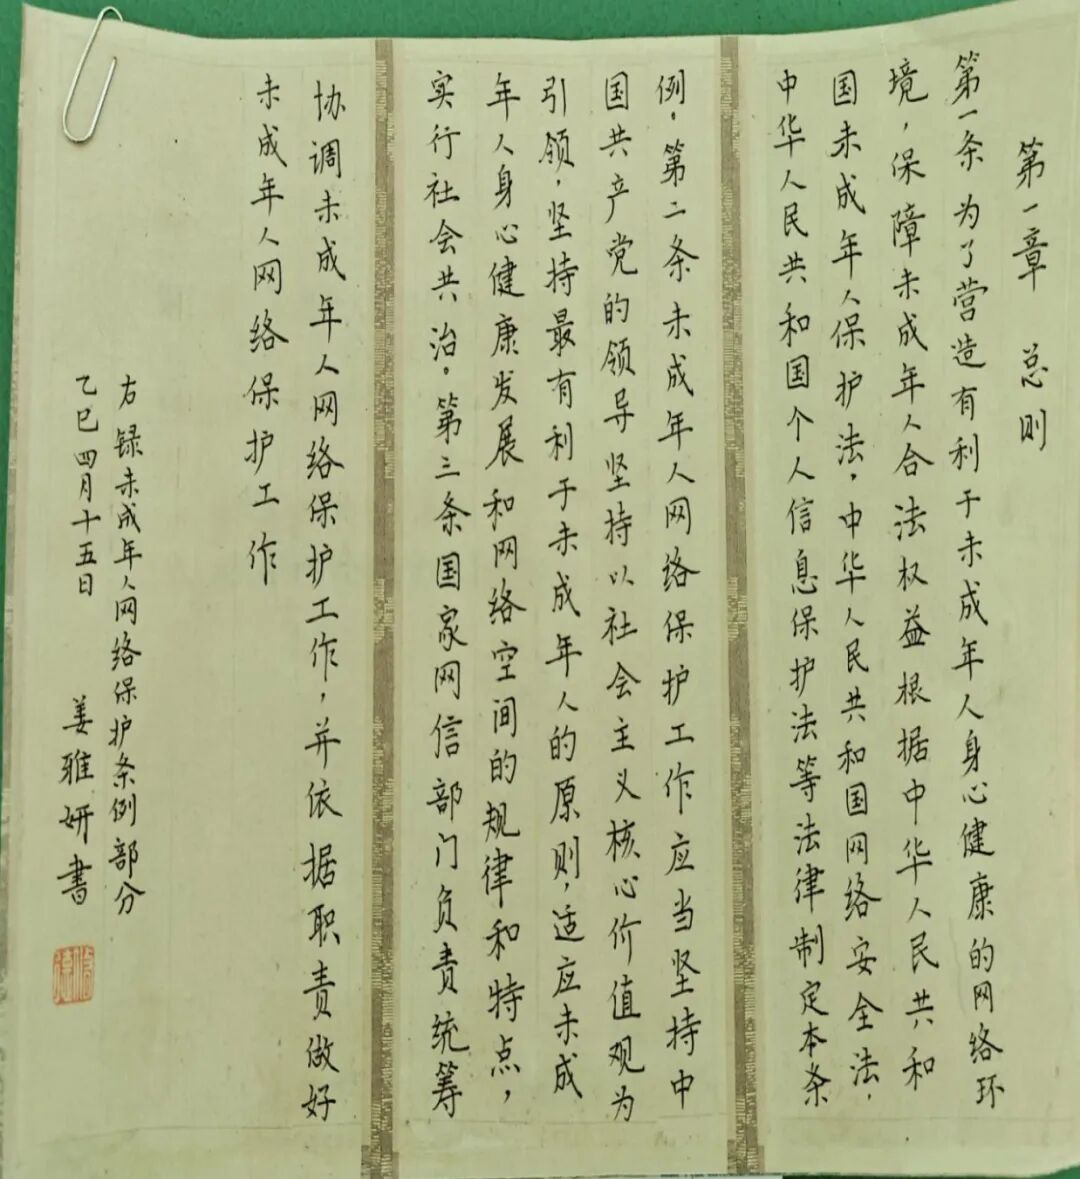 第一章 总则
第一条 为了营造有利于未成年人身心健康的网络环
境，保障未成年人合法权益根据中华人民共和
国未成年人保护法，中华人民共和国网络安全法，
中华人民共和国个人信息保护法等法律制定本条
例。第二条未成年人网络保护工作应当坚持中
国共产党的领导坚持以社会主义核心价值观为
引领，坚持最有利于未成年人的原则，适应未成
年人身心健康发展和网络空间的规律和特点，
实行社会共治。第三条国家网信部门负责统筹
协调未成年人网络保护工作，并依据职责做好
未成年人网络保护工作
右録未成年人网络保护条例部分
乙巳四月十五日 姜雅妍書